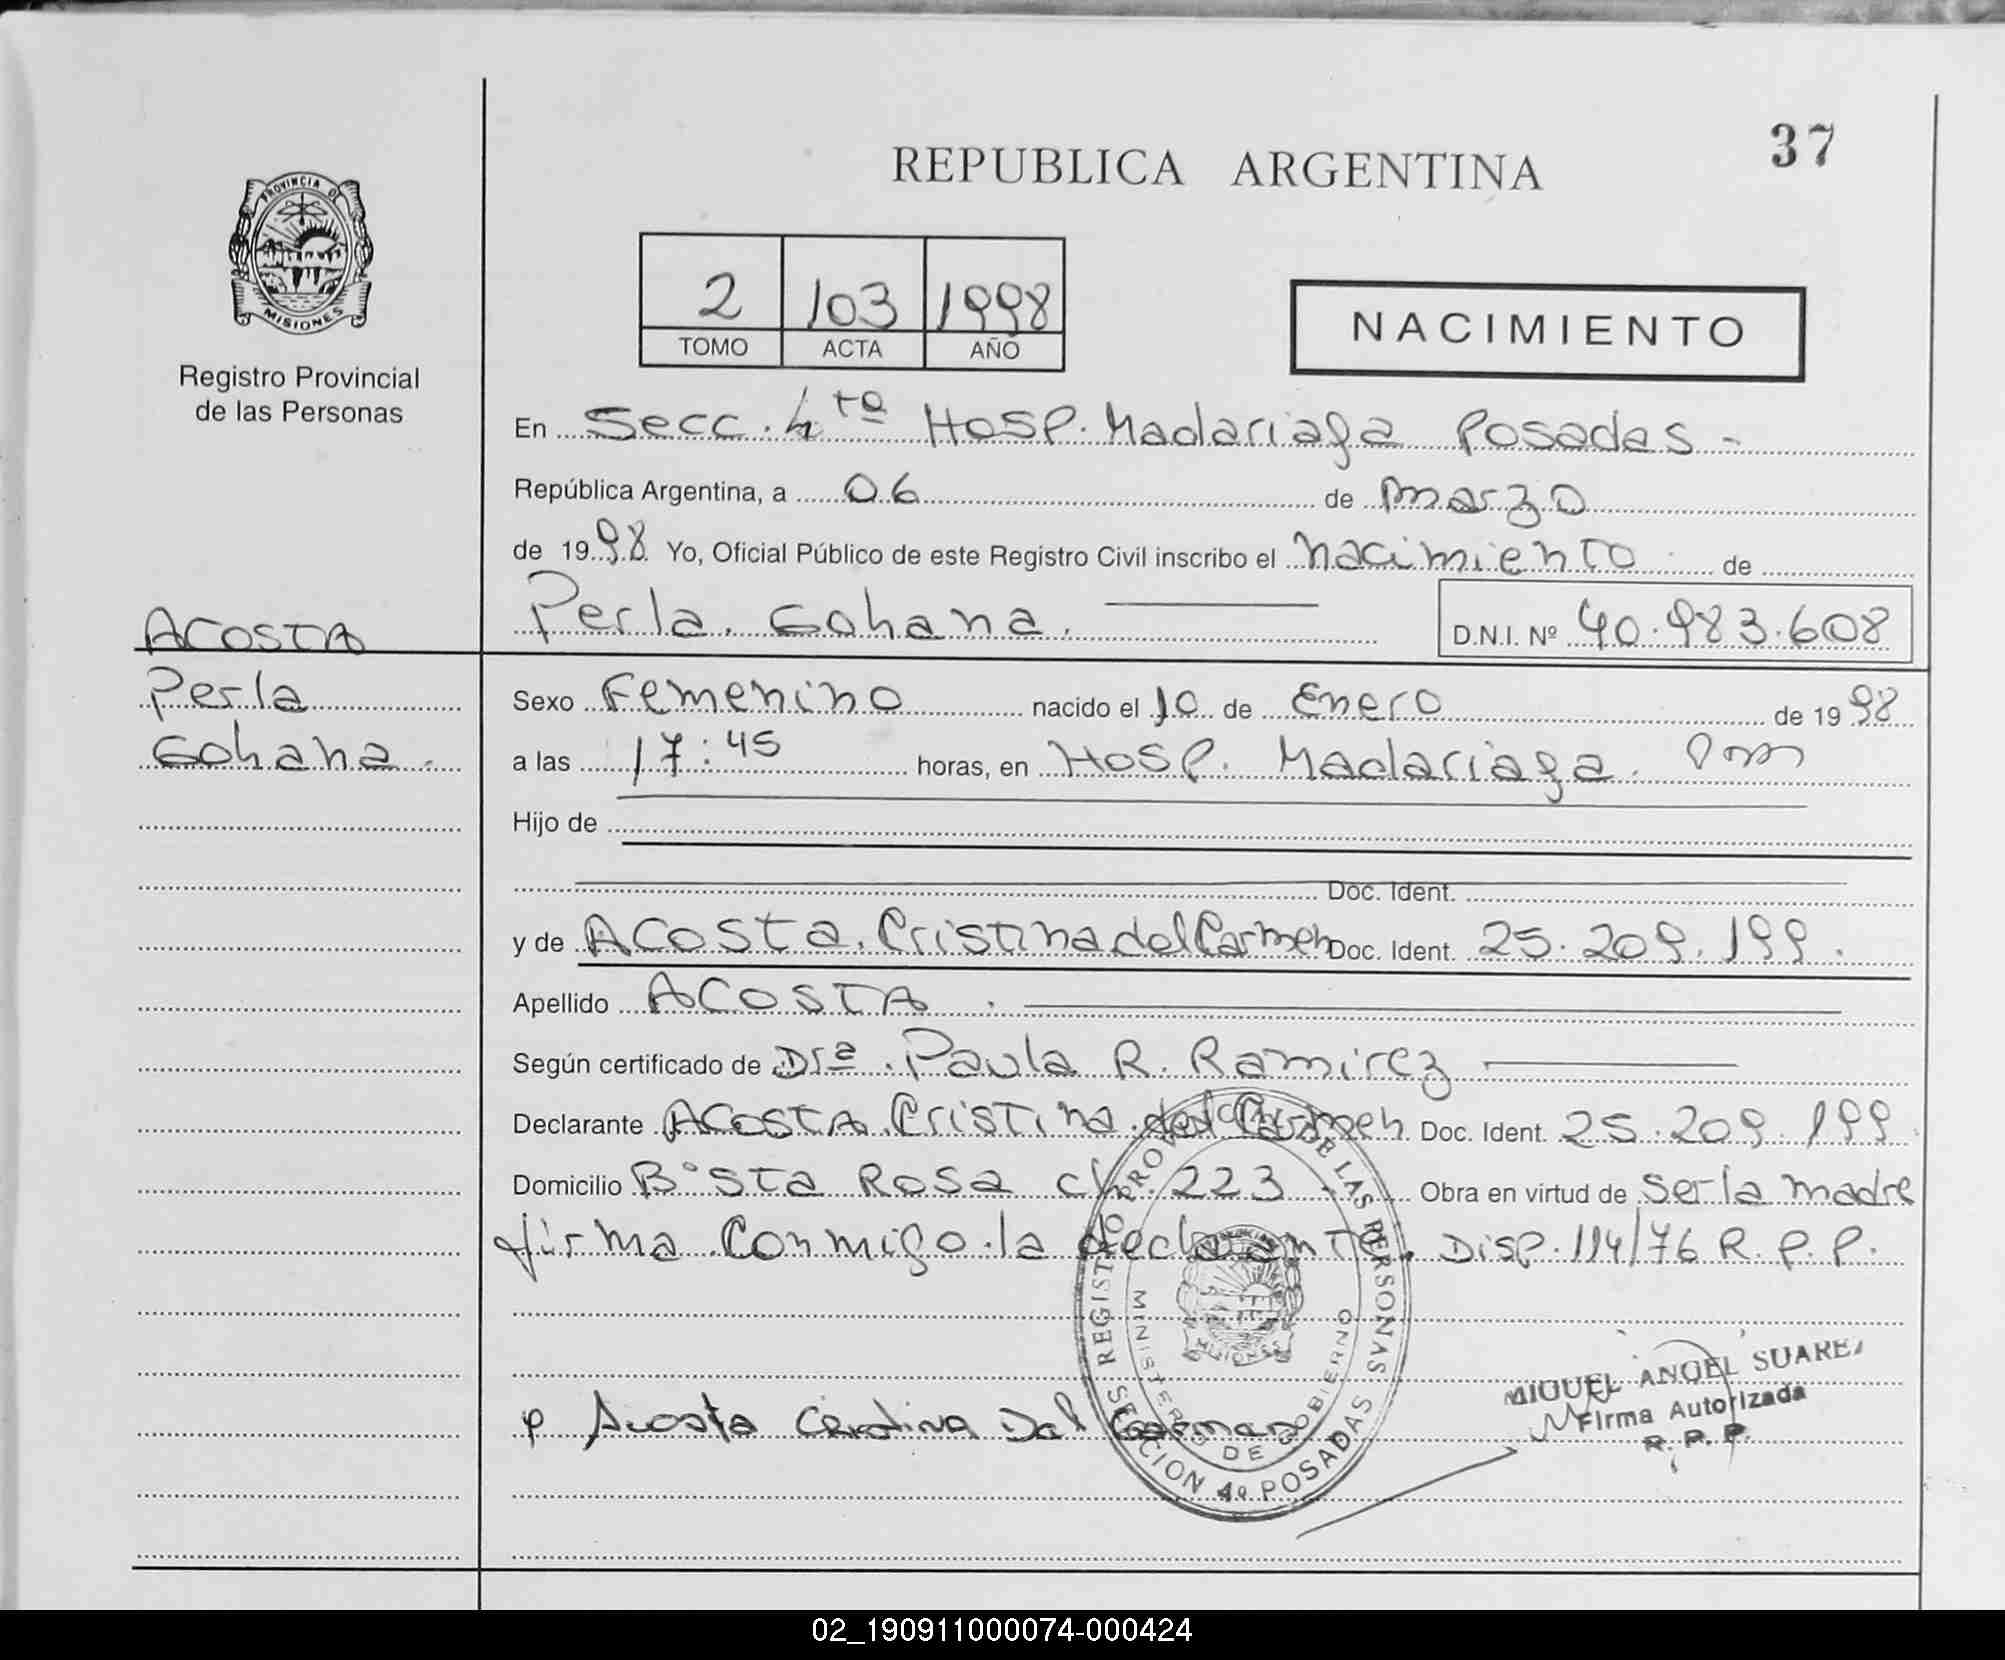 37
REPUBLICA ARGENTINA
PROVINCIA DE
MISIONES
Registro Provincial
de las Personas
2 103 1998
TOMO ACTA AÑO
NACIMIENTO
En Secc. 4ta Hosp. Madariaga Posadas -
República Argentina, a 06 de marzo
de 1998 Yo, Oficial Público de este Registro Civil inscribo el nacimiento de
Perla Gohana. D.N.I. Nº 40.983.608
ACOSTA
Perla
Gohana.
Sexo Femenino nacido el 10 de Enero de 1998
a las 17:45 horas, en Hosp. Madariaga.
Hijo de
Doc. Ident.
y de Acosta, Cristina del Carmen Doc. Ident. 25.209.199.
Apellido ACOSTA.
Según certificado de Dra. Paula R. Ramirez
Declarante ACOSTA, Cristina del Carmen Doc. Ident. 25.209.199.
Domicilio Bº Sta Rosa ch. 223 - Obra en virtud de ser la madre
firma conmigo la declarante. Disp. 114/76 R.P.P.
REGISTRO PROVINCIAL DE LAS PERSONAS
MINISTERIO DE GOBIERNO
MISIONES
SECCION 4º POSADAS
Acosta Cristina Del Carmen
MIGUEL ANGEL SUAREZ
Firma Autorizada
R. P. P.
02_190911000074-000424